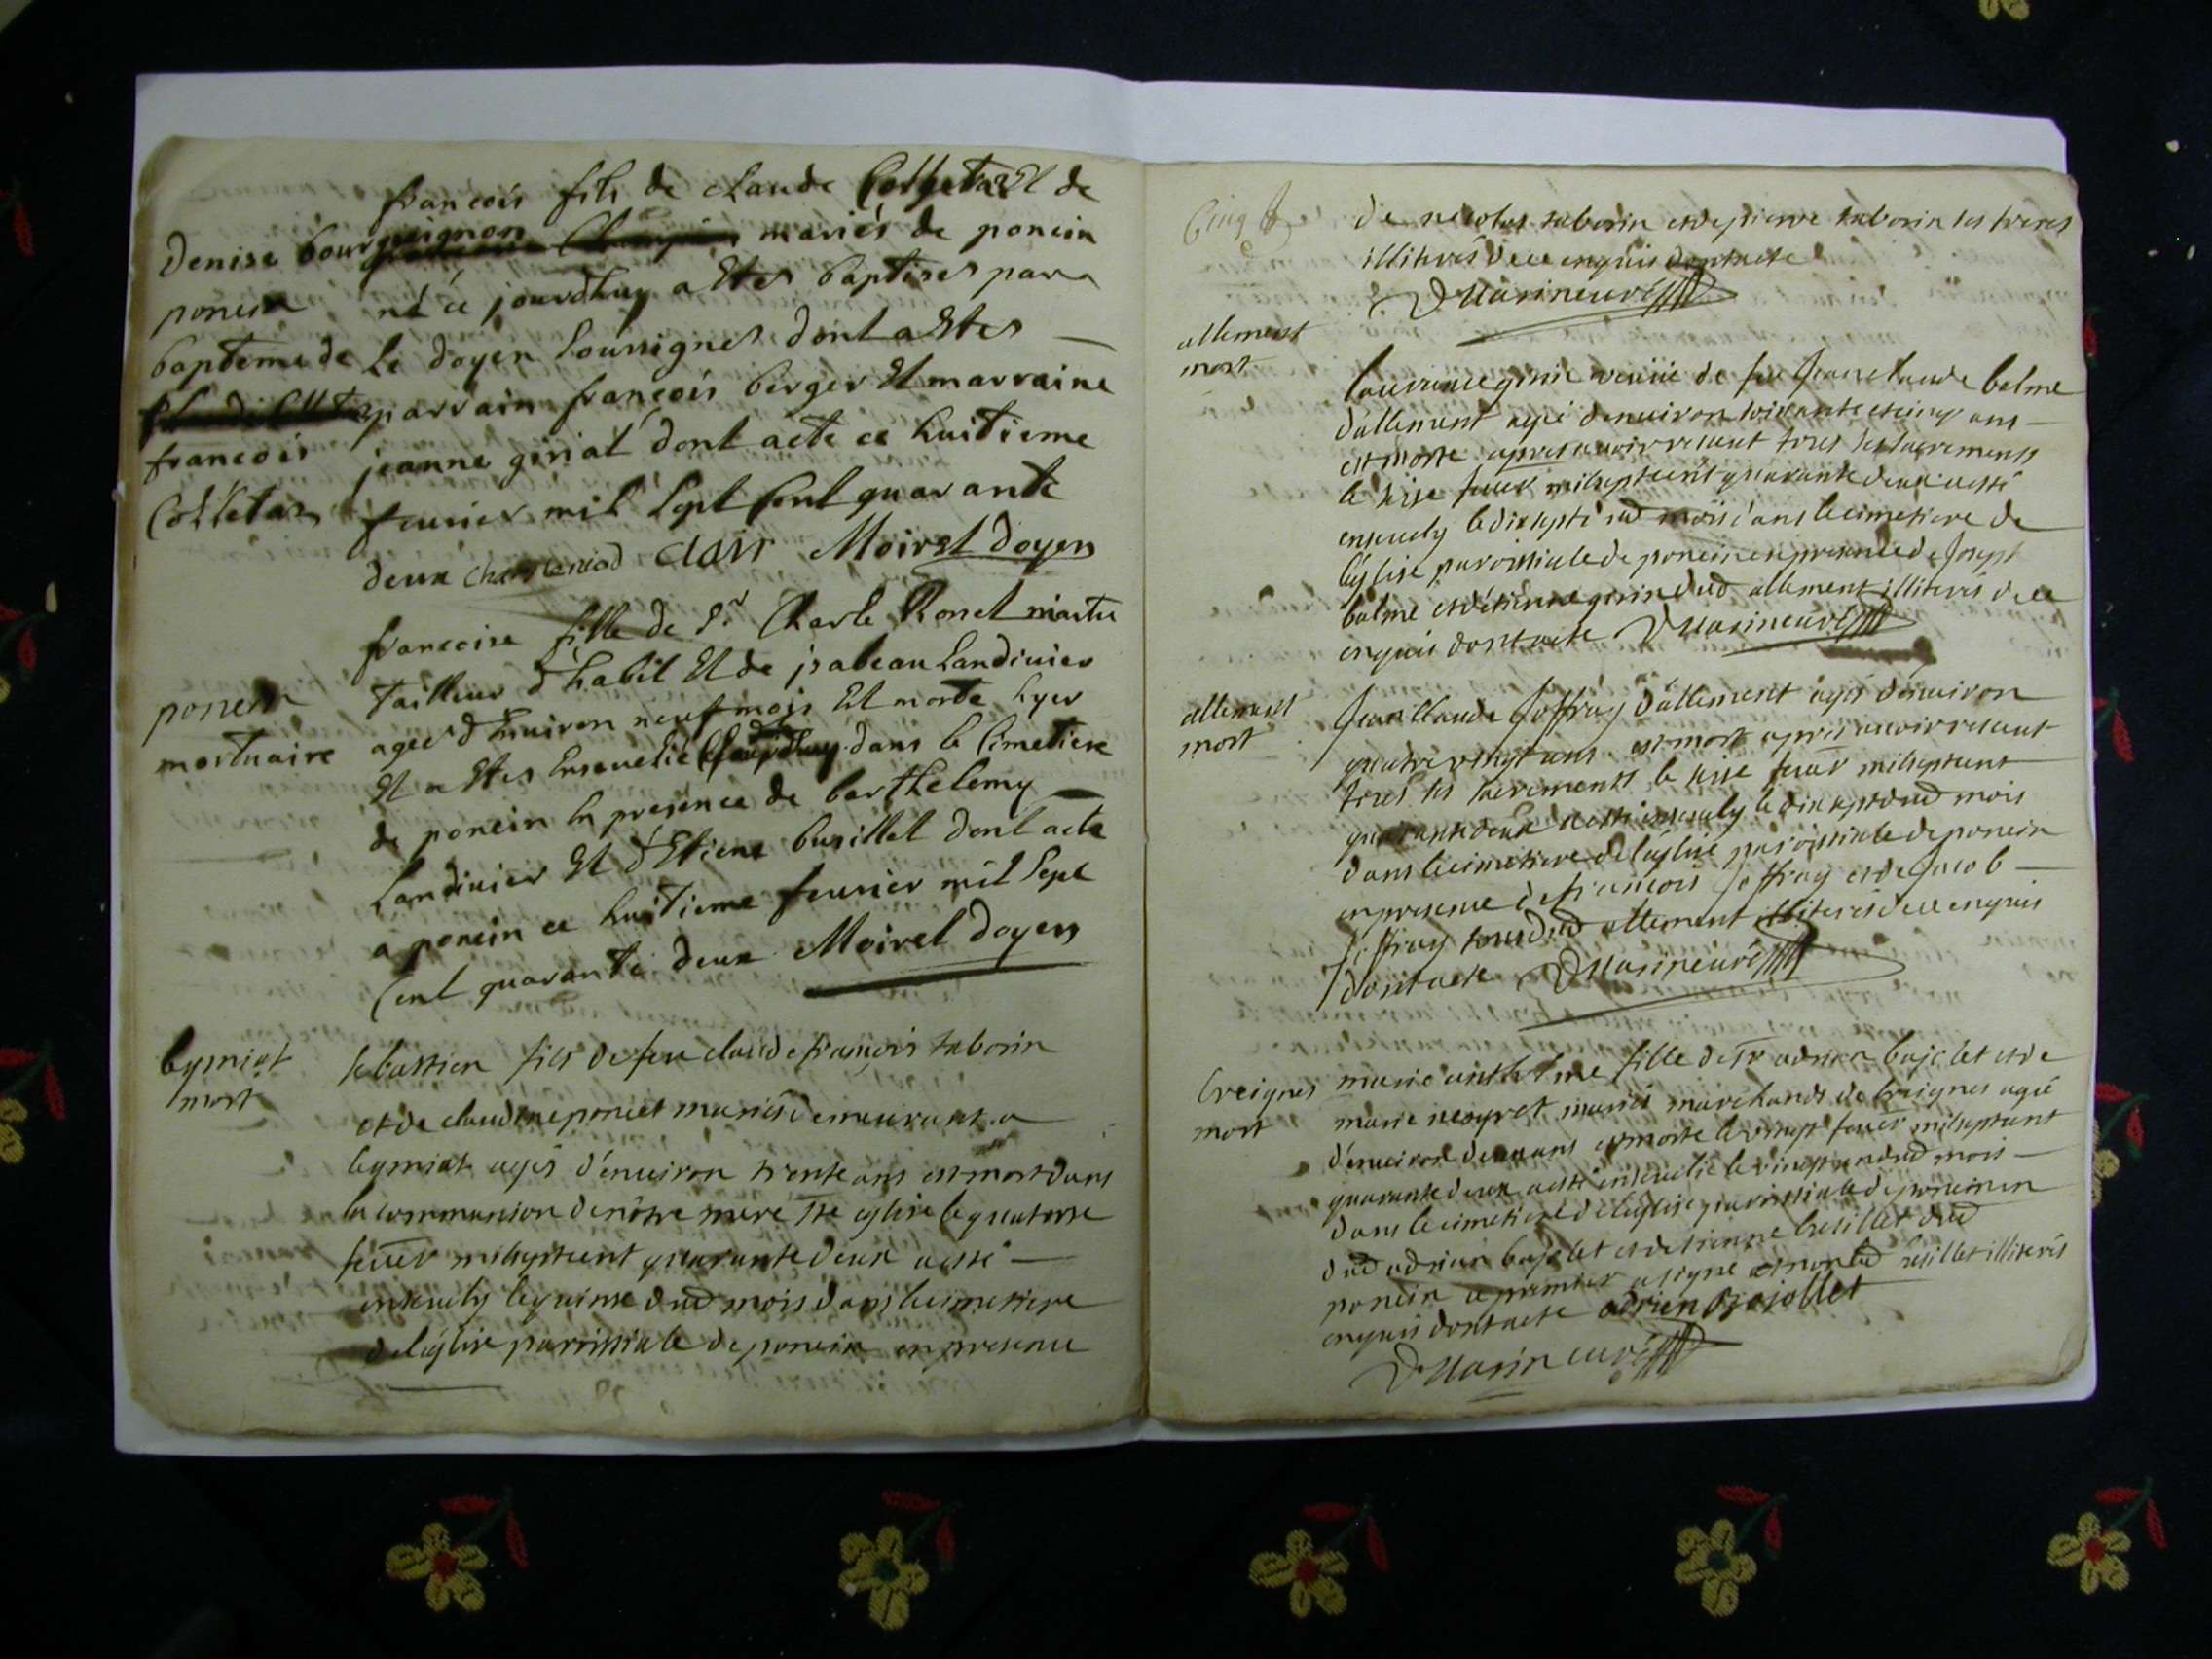 francois fils de claude Colletaz Et de
Denise bourguignon mariés de poncin
poncin né ce jourdhuy a Etes baptises par
bapteme de Le doyen Soussignes dont a Etes
parrain francois berger Et marraine
francois jeanne girial dont acte ce huitieme
Colletaz feurier mil Sept Cent quarante
deux clair Moiret doyen
francoise fille de Sr Charle Ronet maitre
tailleur d'habit Et de jsabeau Landinier
poncin agee d'Enuiron neuf mois Et morte hyer
mortuaire Et a Etes Enseuelie dans le Cimetiere
de poncin En presence de barthelemy
Landinier Et d'Etiene busillet dont acte
a poncin ce huitieme feurier mil Sept
Cent quarante deux Moiret doyen
leymiat sebastien fils de feu claude françois taborin
mort
et de claudine poncet mariés demeurant a
leymiat agés d'enuiron trente ans est mort dans
la communion de nôtre mere ste eglise le quatorse
feuer mil sept cent quarante deux a esté
enseuely le quinse dud mois dans le cimetiere
de l'église parroissiale de poncin en presence
de nicolas taborin et de pierre taborin ses freres
illiterés de ce enquis dont acte
allement
mort
veuüe de feu Jean claude balme
d'allement agée d'enuiron soixante et cinq ans
est morte apres auoir receut tous les sacrements
le seise feuer mil sept cent quarante deux a esté
enseuely le dix sept dud mois dans le cimetiere de
l'église parroissiale de poncin en presence de Joseph
balme et d'étienne girin dud allement illiterés de ce
enquis dont acte
allement Jean Claude Joffray d'allement agés d'enuiron
mort quatre vingt ans est mort apres auoir receut
tous les sacrements le seise feuer mil sept cent
quarante deux a esté enseuely le dix sept dud mois
dans le cimetiere de l'église parroissiale de poncin
en presence de françois Joffray et de Jacob
Joffray tous dud allement illiterés de ce enquis
dont acte
breignes marie anthelme fille de sr adrien bajolet et de
mort marie neyret mariés marchands de breignes agée
d'enuiron deux ans est morte le vingt feuer mil sept cent
quarante deux a esté enseuelie le vingt un dud mois
dans le cimetiere de l'église parroissiale de poncin en
dud adrian bajolet et d'etienne busillet dud
poncin le premier a signé et non led busillet illiterés
enquis dont acte adrien Bajollet